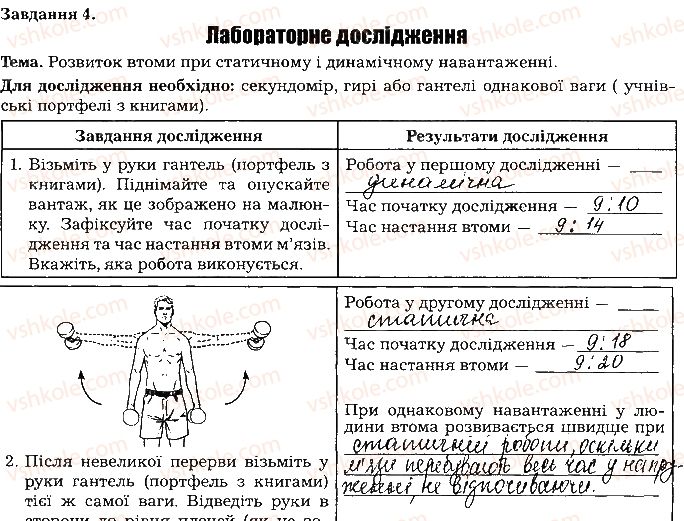 Завдання 4.
Лабораторне дослідження
Тема. Розвиток втоми при статичному і динамічному навантаженні.
Для дослідження необхідно: секундомір, гирі або гантелі однакової ваги ( учнів-
ські портфелі з книгами).
Завдання дослідження
1. Візьміть у руки гантель (портфель з
книгами). Піднімайте та опускайте
вантаж, як це зображено на малюн-
ку. Зафіксуйте час початку дослі-
дження та час настання втоми м’язів.
Вкажіть, яка робота виконується.
Результати дослідження
Робота у першому дослідженні –
динамічна
Час початку дослідження – 9:10
Час настання втоми – 9:14
Робота у другому дослідженні –
статична
Час початку дослідження – 9:18
Час настання втоми – 9:20
При однаковому навантаженні у лю-
дини втома розвивається швидше при
статичній роботі, оскільки
м'язи перебувають весь час у напру-
женні, не відпочиваючи.
2. Після невеликої перерви візьміть у
руки гантель (портфель з книгами)
тієї ж самої ваги. Відведіть руки в
сторони до рівня плечей (чи не за-
vshkole.com